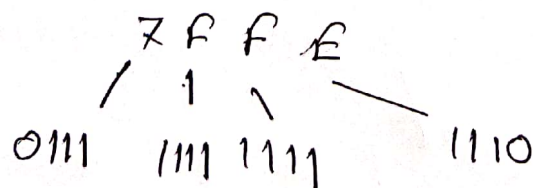 7 F F E
0111 1111 1111 1110